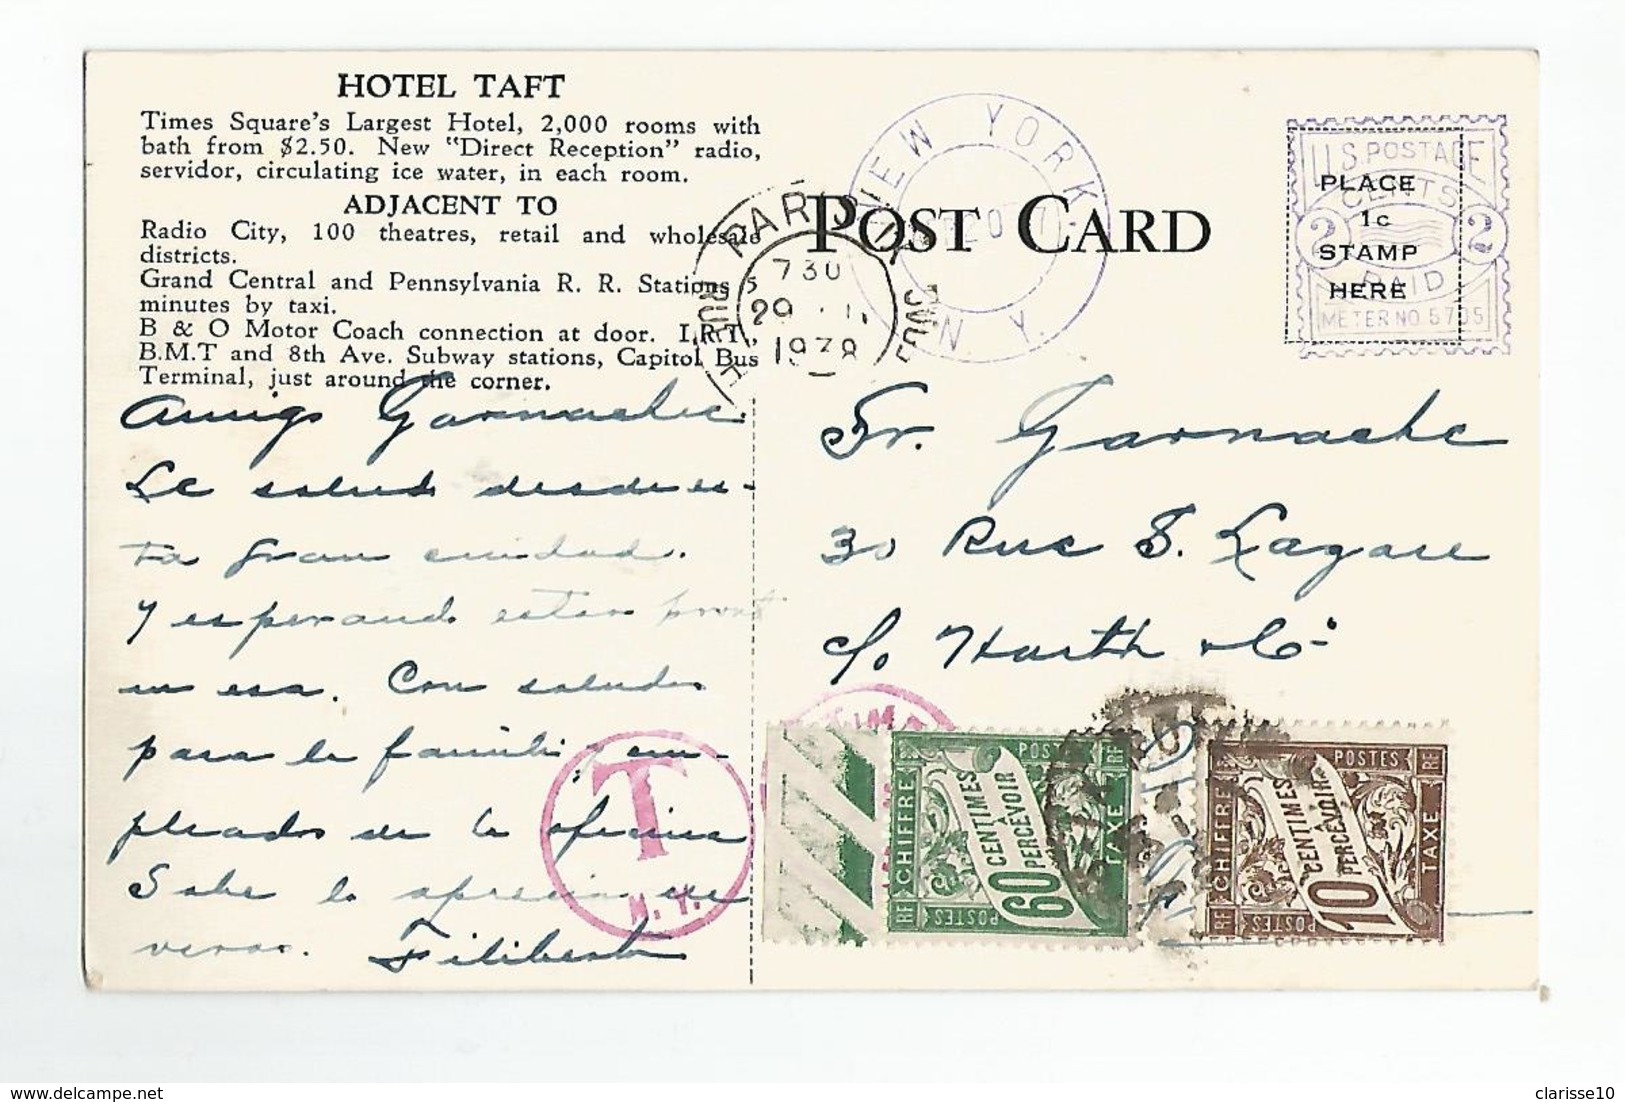 HOTEL TAFT
Times Square's Largest Hotel, 2,000 rooms with
bath from $2.50. New "Direct Reception" radio,
servidor, circulating ice water, in each room.
ADJACENT TO
Radio City, 100 theatres, retail and wholesale
districts.
Grand Central and Pennsylvania R. R. Stations 5
minutes by taxi.
B & O Motor Coach connection at door. I.R.T.,
B.M.T and 8th Ave. Subway stations, Capitol Bus
Terminal, just around the corner.
POST CARD
NEW YORK
N. Y.
PARIS
RUE
730
1938
U.S. POSTAGE
2 CENTS 2
PAID
METER NO. 5705
PLACE
1c
STAMP
HERE
Amigo Garnache.
Le saludo desde es-
ta gran ciudad.
Y esperando estar pronto
en esa. Con saludos
para la familia y em-
pleados de la oficina
Sabe lo aprecia de
veras. Filiberto
Sr. Garnache
30 Rue
c/o Harth & Co
T
N. Y.
CHIFFRE
POSTES
RF
60 CENTIMES
À PERCEVOIR
TAXE
RF POSTES
CHIFFRE
POSTES
RF
10 CENTIMES
À PERCEVOIR
TAXE
RF POSTES
clarisse10